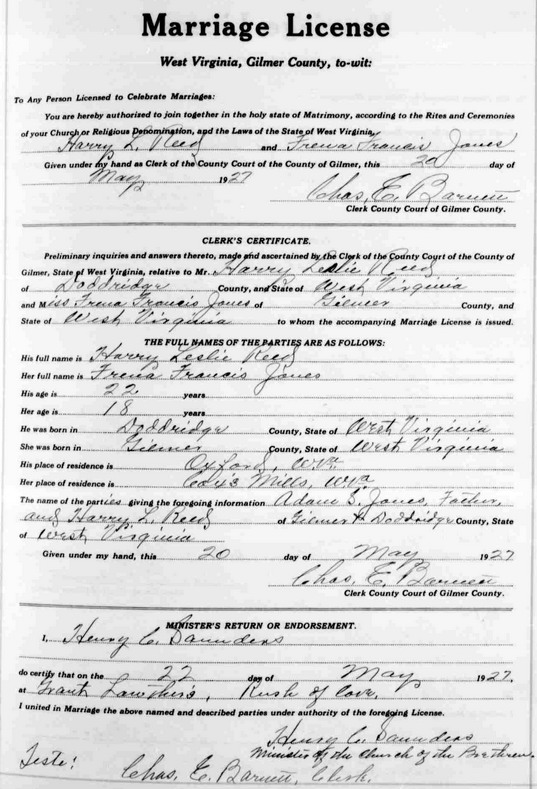 Marriage License
West Virginia, Gilmer County, to-wit:
To Any Person Licensed to Celebrate Marriages:
You are hereby authorized to join together in the holy state of Matrimony, according to the Rites and Ceremonies
of your Church or Religious Denomination, and the Laws of the State of West Virginia,
Harry L. Reed and Frena Francis Jones
Given under my hand as Clerk of the County Court of the County of Gilmer, this 20 day of
May 1927
Chas. E. Barnett
Clerk County Court of Gilmer County.
CLERK'S CERTIFICATE.
Preliminary inquiries and answers thereto, made and ascertained by the Clerk of the County Court of the County of
Gilmer, State of West Virginia, relative to Mr. Harry Leslie Reed
of Doddridge County, and State of West Virginia
and Miss Frena Francis Jones of Gilmer County, and
State of West Virginia to whom the accompanying Marriage License is issued.
THE FULL NAMES OF THE PARTIES ARE AS FOLLOWS:
His full name is Harry Leslie Reed
Her full name is Frena Francis Jones
His age is 22 years
Her age is 18 years
He was born in Doddridge County, State of West Virginia
She was born in Gilmer County, State of West Virginia
His place of residence is Oxford, W.Va.
Her place of residence is Cox's Mills, W.Va.
The name of the parties giving the foregoing information Adam S. Jones, Father,
and Harry L. Reed of Gilmer & Doddridge County, State
of West Virginia
Given under my hand, this 20 day of May 1927
Chas. E. Barnett
Clerk County Court of Gilmer County.
MINISTER'S RETURN OR ENDORSEMENT.
I, Henry C. Saunders
do certify that on the 22 day of May 1927,
at Grant , Rush of Cove,
I united in Marriage the above named and described parties under authority of the foregoing License.
Henry C. Saunders
Minister of the Church of the Brethren.
Teste: Chas. E. Barnett, Clerk.